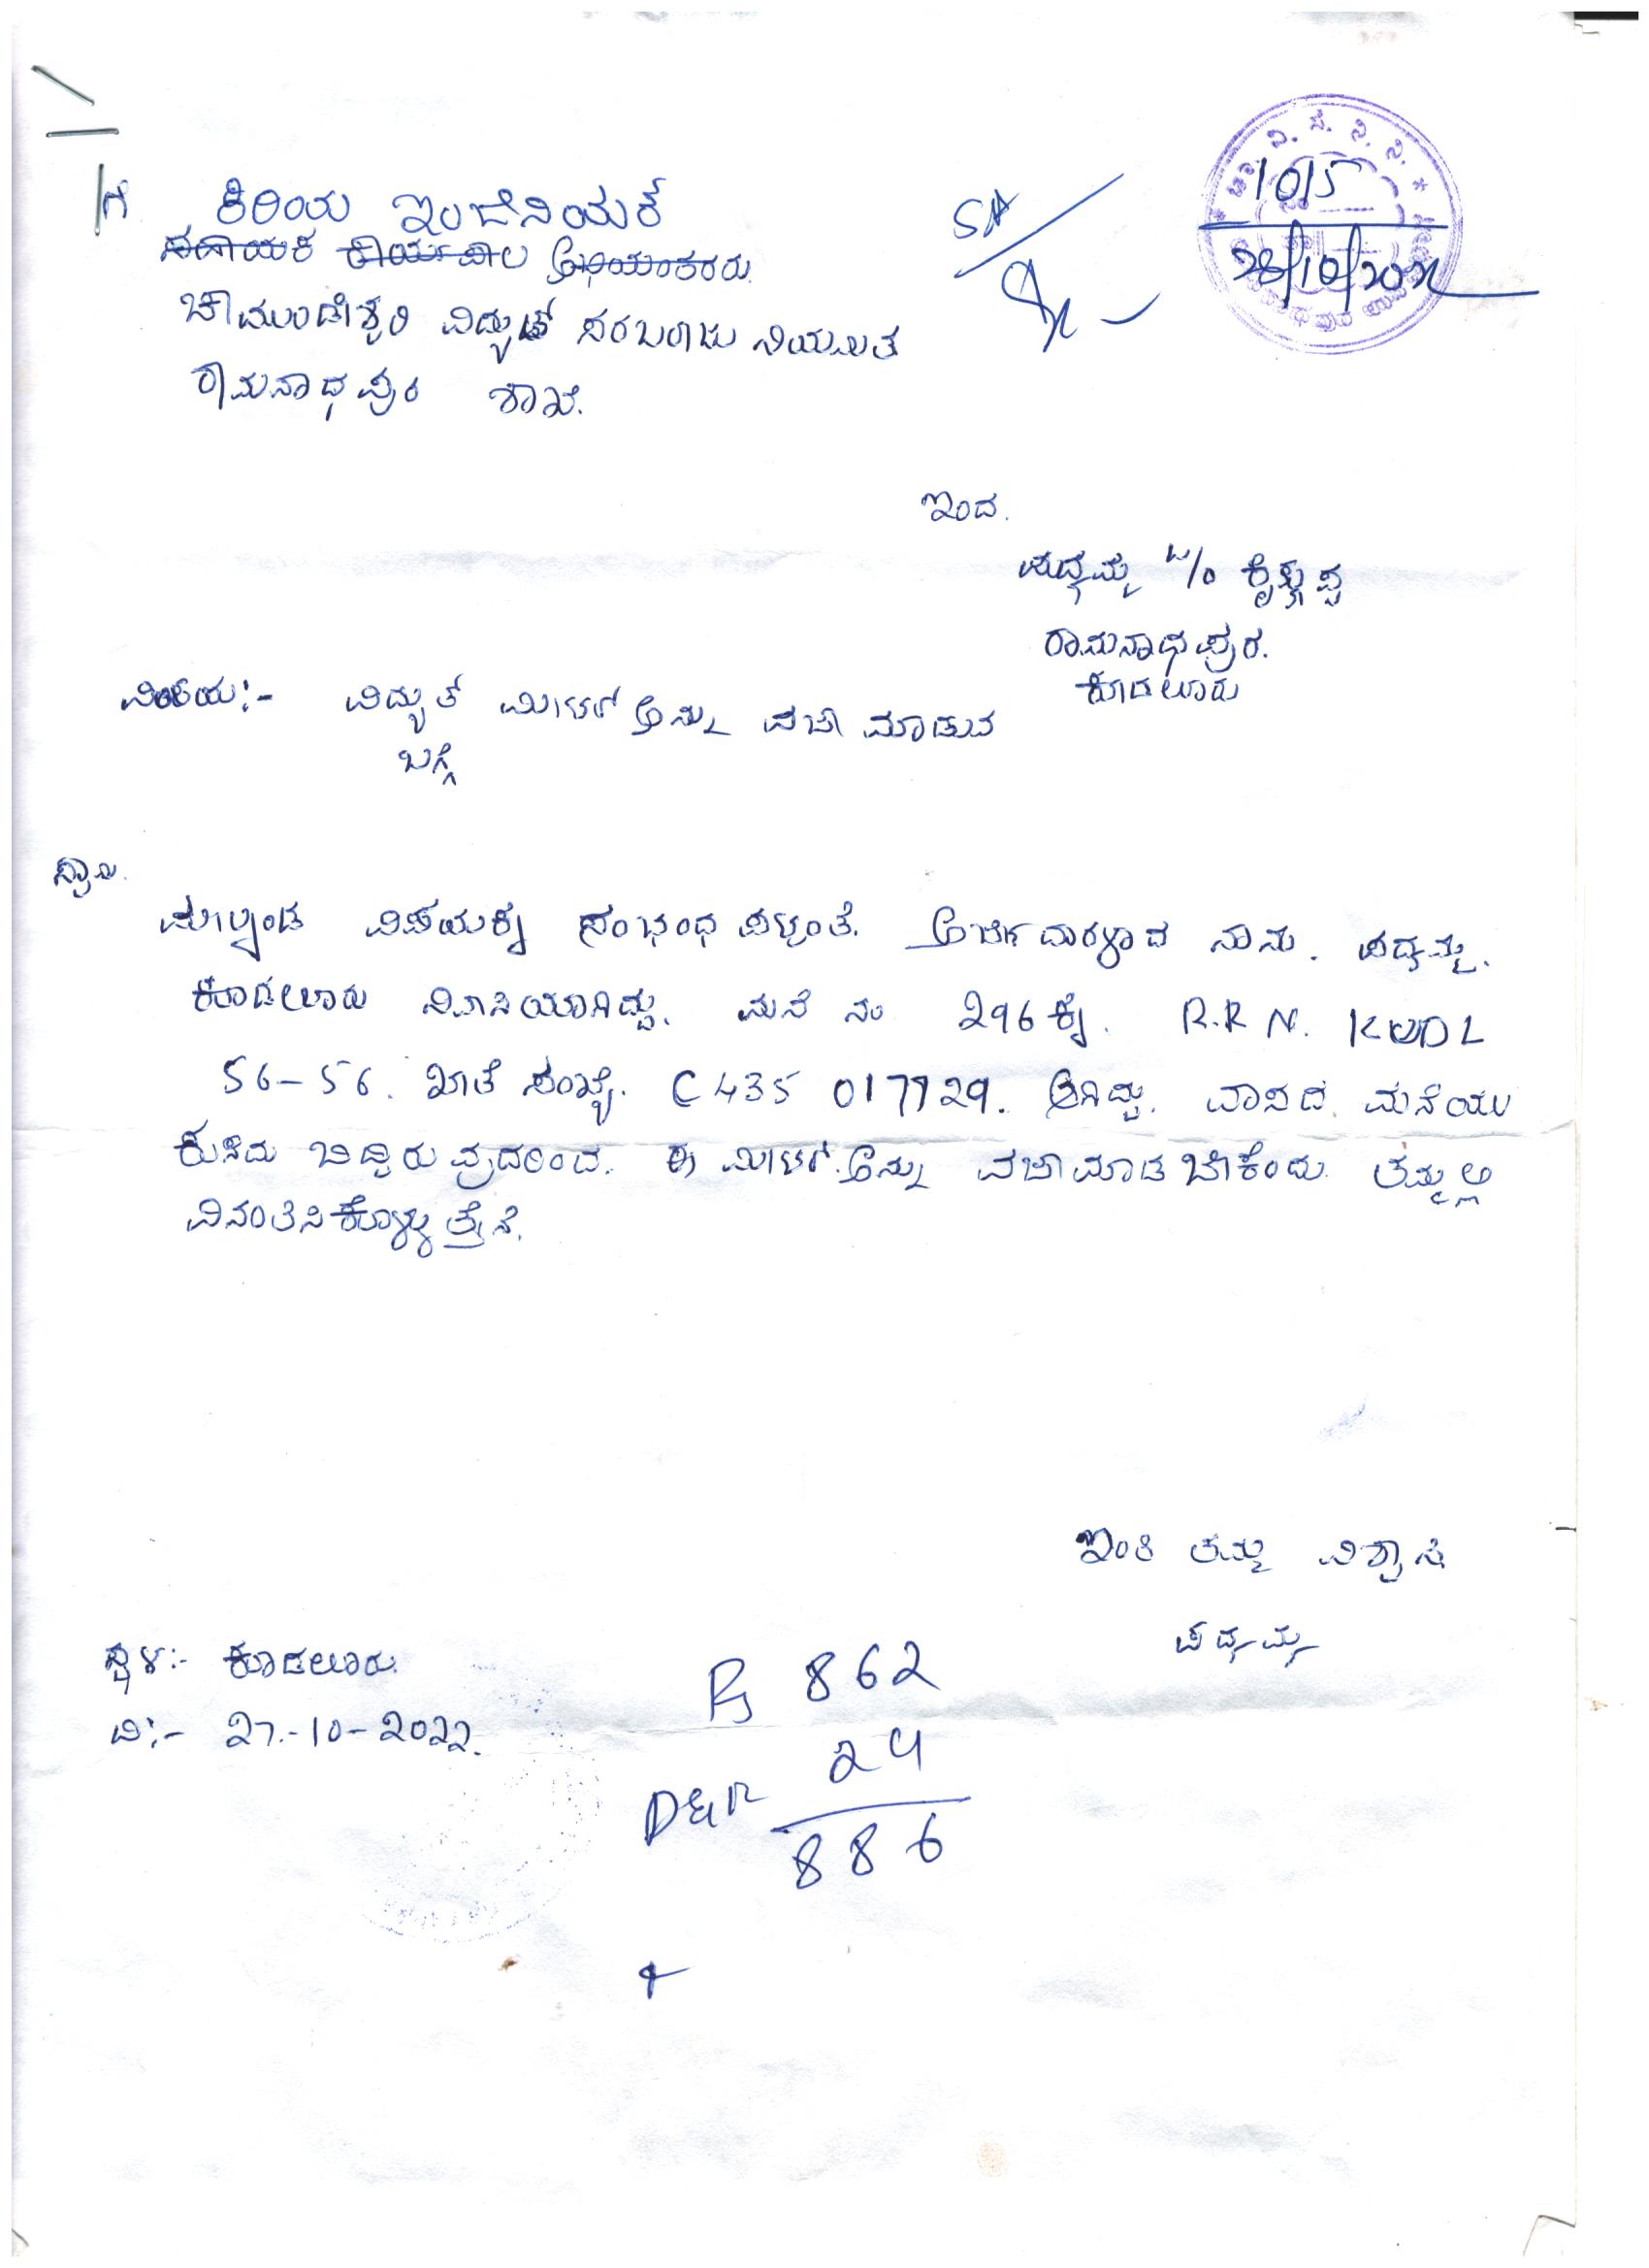 ಗೆ
ಕಿರಿಯ ಇಂಜಿನಿಯರ್
ಸಹಾಯಕ ಕಾರ್ಯಪಾಲ ಅಭಿಯಂತರರು.
ಚಾಮುಂಡೇಶ್ವರಿ ವಿದ್ಯುತ್ ಸರಬರಾಜು ನಿಯಮಿತ
ರಾಮನಾಥಪುರ ಶಾಖೆ.
SA
ಚಾ. ವಿ. ಸ. ನಿ. ನಿ.
1015
28/10/2022
ಇಂದ.
ಪದ್ಮಮ್ಮ W/o ಕೃಷ್ಣಪ್ಪ
ರಾಮನಾಥಪುರ.
ಕೂಡಲೂರು
ವಿಷಯ:- ವಿದ್ಯುತ್ ಮೀಟರ್ ಅನ್ನು ವಜಾ ಮಾಡುವ
ಬಗ್ಗೆ
ಸ್ವಾಮಿ.
ಮೇಲ್ಕಂಡ ವಿಷಯಕ್ಕೆ ಸಂಭಂಧ ಪಟ್ಟಂತೆ. ಅರ್ಜಿದಾರಳಾದ ನಾನು. ಪದ್ಮಮ್ಮ.
ಕೂಡಲೂರು ನಿವಾಸಿಯಾಗಿದ್ದು. ಮನೆ ನಂ 296 ಕ್ಕೆ. R.R N. KUDL
56-56. ಖಾತೆ ಸಂಖ್ಯೆ. C435 017729. ಆಗಿದ್ದು. ವಾಸದ ಮನೆಯು
ಕುಸಿದು ಬಿದ್ದಿರುವುದರಿಂದ. ಈ ಮೀಟರ್ ಅನ್ನು ವಜಾಮಾಡಬೇಕೆಂದು ತಮ್ಮಲ್ಲಿ
ವಿನಂತಿಸಿಕೊಳ್ಳುತ್ತೇನೆ.
ಇಂತಿ ತಮ್ಮ ವಿಶ್ವಾಸಿ
ಪದ್ಮಮ್ಮ
ಸ್ಥಳ:- ಕೂಡಲೂರು
ದಿ:- 27-10-2022.
Rs 862
D&R 24
886